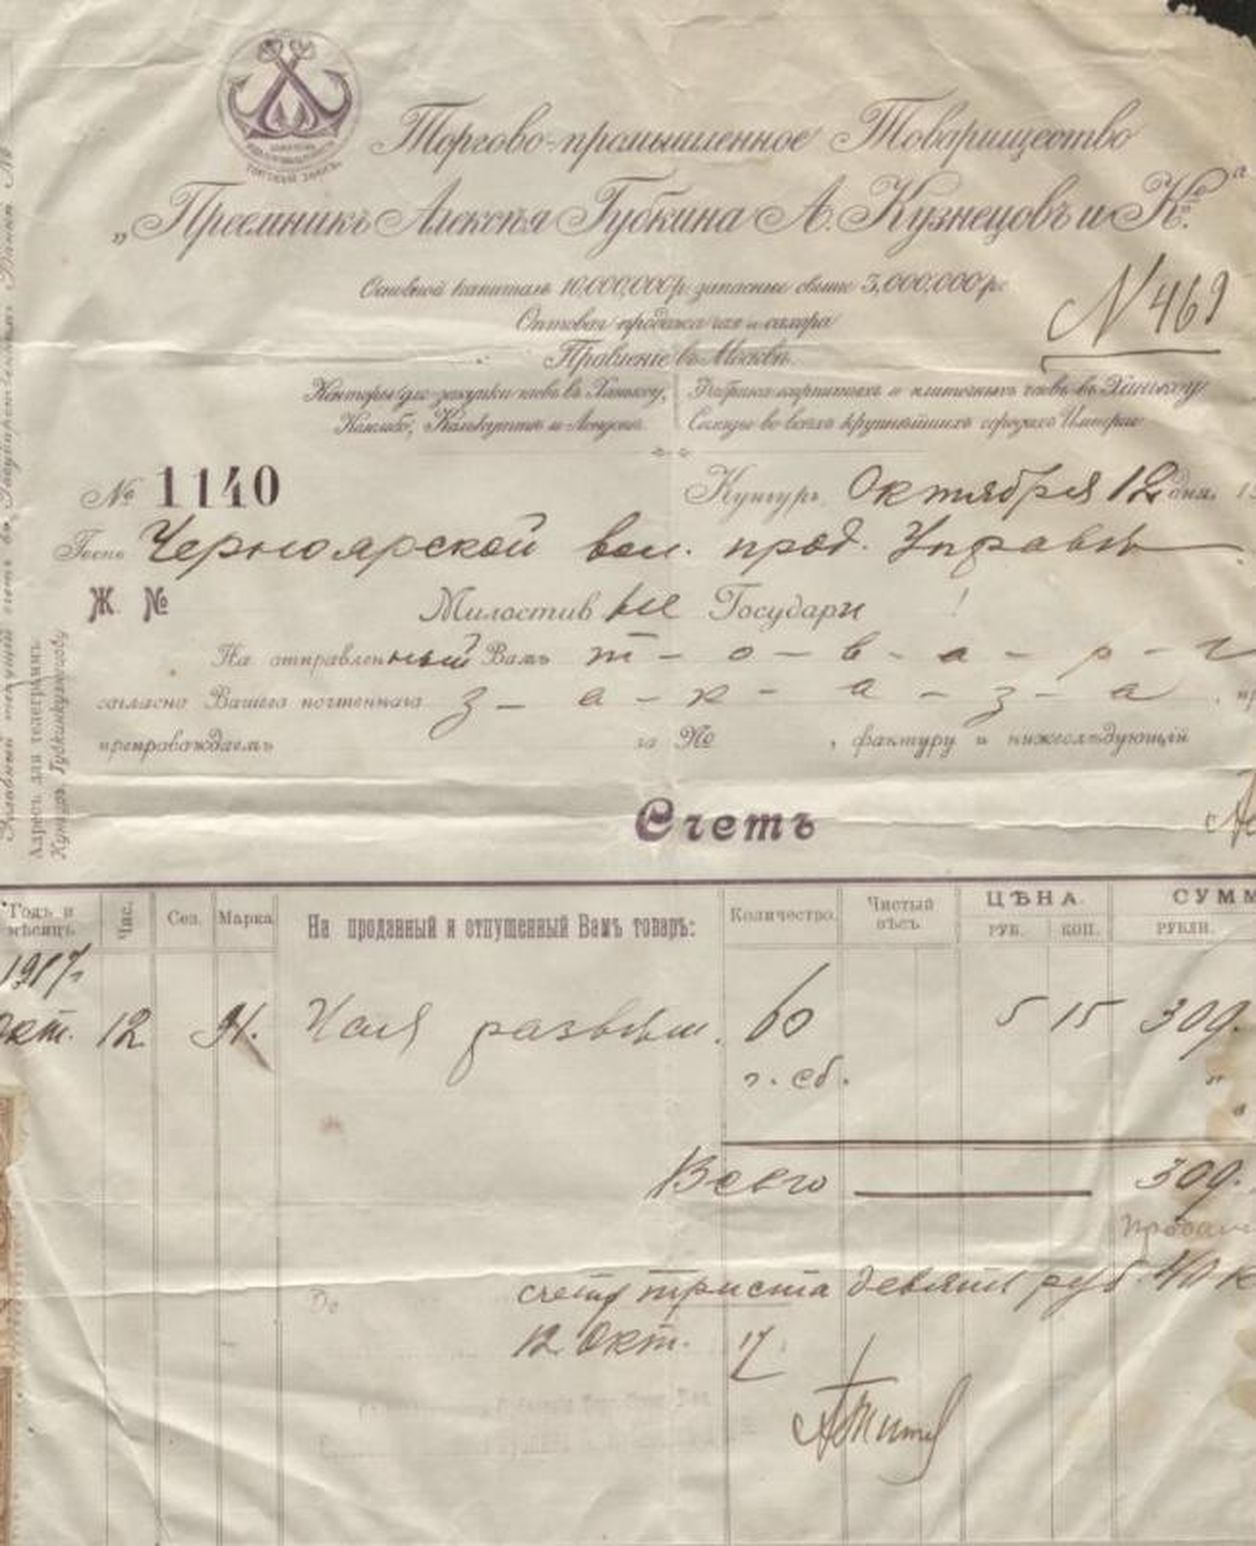 Торгово-промышленное Товарищество
„Преемникъ Алексѣя Губкина А. Кузнецовъ и Ко."
Основной капиталъ 10,000,000 р. запасные свыше 3,000,000 р.
Оптовая продажа чая и сахара
Правленіе въ Москвѣ.
N 469
Конторы для закупки чаевъ въ Ханькоу,
Коломбо, Калькуттѣ и Лондонѣ.
Фабрика кирпичныхъ и плиточныхъ чаевъ въ Ханькоу
Склады во всѣхъ крупнѣйшихъ городахъ Имперіи
№ 1140
Кунгуръ, Октября 12 дня, 1
Госп. Черноярской вол. прод. Управѣ
Ж №
Милостивые Государи !
На отправленный Вамъ т - о - в - а - р -
согласно Вашего почтеннаго з - а - к - а - з - а , пр
препровождаемъ за № , фактуру и нижеслѣдующій
Счетъ
Адресъ для телеграммъ
Кунгуръ, Губкинкузнецову
Годъ и мѣсяцъ Чис. Сез. Марка На проданный и отпущенный Вамъ товаръ: Количество. Чистый вѣсъ. ЦѢНА. СУММ
РУБ. КОП. РУБЛИ.
1917г.
Окт. 12 Н. Чая развѣш. 60 5 15 309.
г. сб. "
Всего 309.
счету триста девять руб 40 к
12 Окт. 17